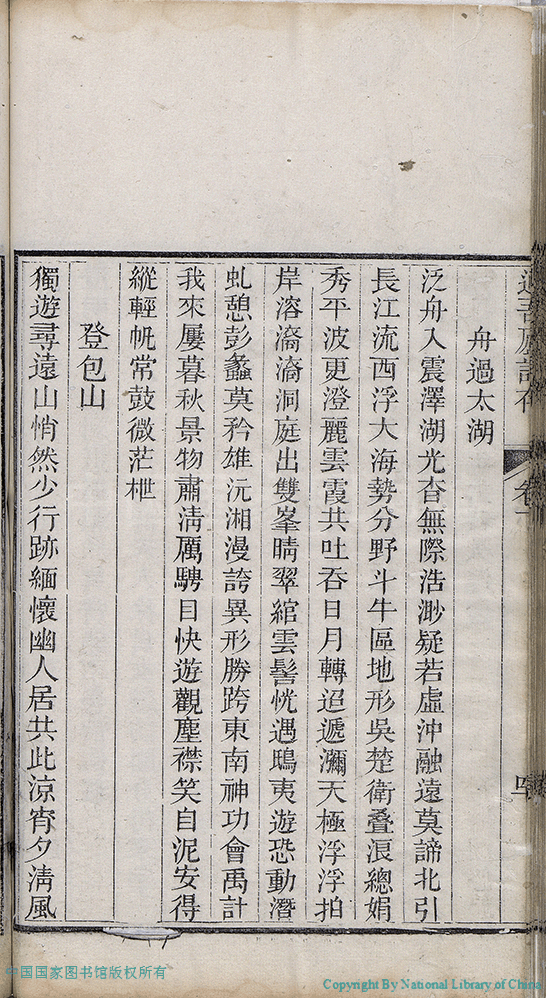 舟過太湖
泛舟入震澤湖光杳無際浩渺疑若虛沖融遠莫諦北引
長江流西浮大海勢分野斗牛區地形吳楚衛叠浪總娟
秀平波更澄麗雲霞共吐吞日月轉迢遞瀰天極浮浮拍
岸溶滴滴洞庭出雙峯晴翠綰雲髻恍遇鴟夷遊恐動潛
虬憩彭蠡莫矜雄沅湘漫誇異形勝跨東南神功會禹計
我來屢暮秋景物肅淸厲騁目快遊觀塵襟笑自泥安得
縱輕帆常鼓微茫枻
登包山
獨遊尋遠山悄然少行跡緬懷幽人居共此涼宵夕淸風
中国国家图书馆版权所有
Copyright By National Library of China